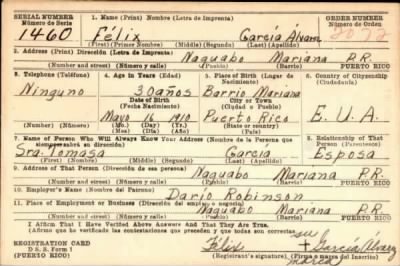 SERIAL NUMBER
Número de Serie
1. Name (Print) Nombre (Letra de Imprenta)
ORDER NUMBER
Número de Orden
1460
Félix García Álvarez
(First) (Primer Nombre) (Middle) (Segundo) (Last) (Apellido)
2. Address (Print) Dirección (Letra de Imprenta)
Naguabo Mariana P.R.
3. Telephone (Teléfono)
4. Age in Years (Edad)
5. Place of Birth (Lugar de Nacimiento)
6. Country of Citizenship
(Ciudadanía)
Ninguno
30 años
Barrio Mariana
Date of Birth
(Fecha Nacimiento)
City or Town
(Ciudad o Pueblo)
Mayo 16 1910
Puerto Rico
E. U. A.
(Mo.) (Day) (Yr.)
(Mes) (Día) (Año)
(State or country)
7. Name of Person Who Will Always Know Your Address (Nombre de la Persona que siempre sabrá su dirección)
8. Relationship of That Person (Parentesco)
Sra. Tomasa García
Esposa
(First) (Nombre) (Middle) (Segundo) (Last) (Apellido)
9. Address of That Person (Dirección de esa persona)
Naguabo Mariana P.R.
10. Employer's Name (Nombre del Patrono)
Darío Robinson
11. Place of Employment or Business (Dirección del empleo o negocio)
Naguabo Mariana P.R.
I Affirm That I Have Verified Above Answers And That They Are True.
(Afirmo que he verificado las contestaciones que preceden y que todas son correctas)
REGISTRATION CARD
D. S. S. Form 1
(PUERTO RICO)
Félix su + García Álvarez
marca
(Registrant's signature) (Firma registrado)